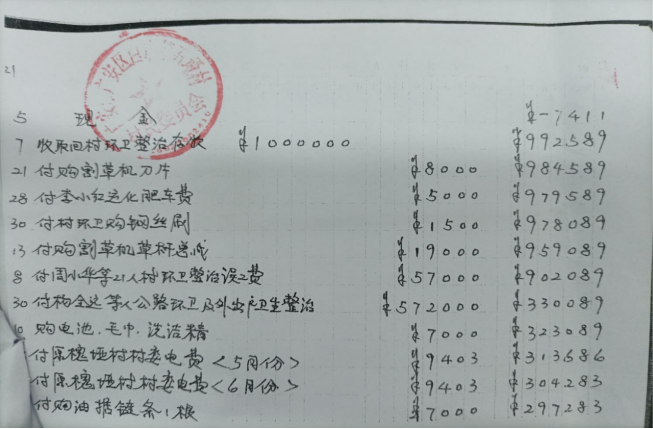 21
5 现金 ¥-7411
7 收取回村环卫整治存款 ¥1000000 ¥992589
21 付购割草机刀片 ¥8000 ¥984589
28 付李小红运化肥车费 ¥5000 ¥979589
30 付村环卫购钢丝刷 ¥1500 ¥978089
13 付购割草机草杆总成 ¥19000 ¥959089
8 付周小华等21人村环卫整治误工费 ¥57000 ¥902089
30 付杨全达等人公路环卫及外出户卫生整治 ¥572000 ¥330089
购电池、毛巾、洗洁精 ¥7000 ¥323089
付原槐垭村村委电费<5月份> ¥9403 ¥313686
付原槐垭村村委电费<6月份> ¥9403 ¥304283
付购油锯链条1根 ¥7000 ¥297283